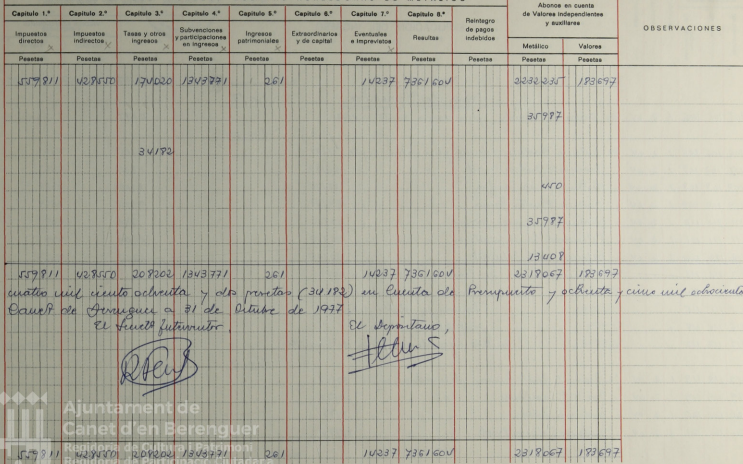 Capítulo 1.º Capítulo 2.º Capítulo 3.º Capítulo 4.º Capítulo 5.º Capítulo 6.º Capítulo 7.º Capítulo 8.º Reintegro de pagos indebidos Abonos en cuenta de Valores independientes y auxiliares OBSERVACIONES
Impuestos directos Impuestos indirectos Tasas y otros ingresos Subvenciones y participaciones en ingresos Ingresos patrimoniales Extraordinarios y de capital Eventuales e Imprevistos Resultas Metálico Valores
Pesetas Pesetas Pesetas Pesetas Pesetas Pesetas Pesetas Pesetas Pesetas Pesetas Pesetas
559811 428550 174020 1343771 261 14237 7361604 2232235 183697
35987
34182
450
35987
13408
559811 428550 208202 1343771 261 14237 7361604 2318067 183697
cuatro mil ciento ochenta y dos pesetas (34182) en Cuenta de Presupuesto y ochenta y cinco mil ochocientos
Canet de Berenguer a 31 de Octubre de 1977
El Secret. Interventor, El Depositario,
Ajuntament de
Canet d'en Berenguer
Regidoria de Cultura i Patrimoni
559811 428550 208202 1343771 261 14237 7361604 2318067 183697